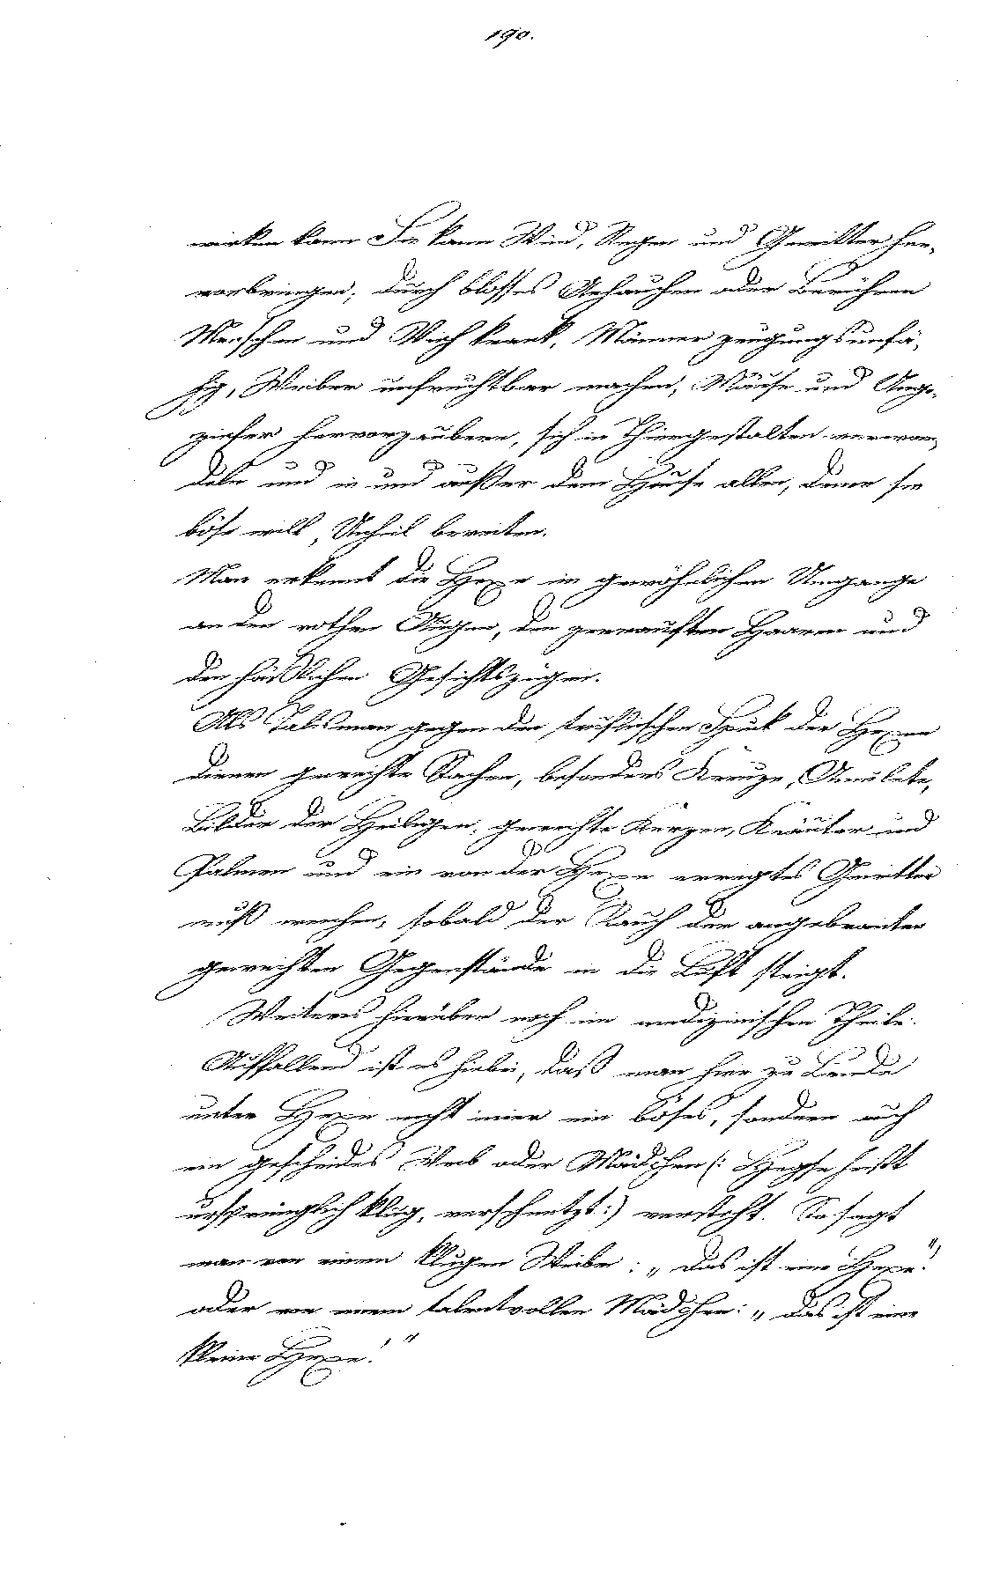 190.
wirken kann Sie kann Wind, Regen und Gewitter her-
vorbringen, durch blosses Anhauchen oder Berühren
Menschen und Vieh krank, Männer zeugungsunfä-
hig, Weiber unfruchtbar machen, Mäuse und Unge-
ziefer hervorzaubern, sich in Thiergestalten verwan-
deln und in und außer dem Hause allen, denen sie
böse will, Unheil bereiten.
Man erkennt die Hexe im gewöhnlichen Umgange
an den rothen Augen, den zerrauften Haaren und
den häßlichen Gesichtszügen.
Als Talisman gegen den teuflischen Spuk der Hexen
dienen geweihte Sachen, besonders Kreuze, Amulete,
Bilder der Heiligen, geweihte Kerzen, Kräuter und
Palmen und ein von der Hexe erregtes Gewitter
muß weichen, sobald der Rauch der angebrannten
geweihten Gegenstände in die Luft steigt.
Weiteres hierüber noch im medizinischen Theile.
Auffallend ist es hiebei, daß man hier zu Lande
unter Hexe nicht imer ein böses, sondern auch
ein gescheides Weib oder Mädchen (: Hegse heißt
ursprünglich klug, verschmitzt :) versteht. So sagt
man von einem klugen Weibe: „das ist eine Hexe",
oder von einem talentvollen Mädchen: „das ist eine
kleine Hexe!"